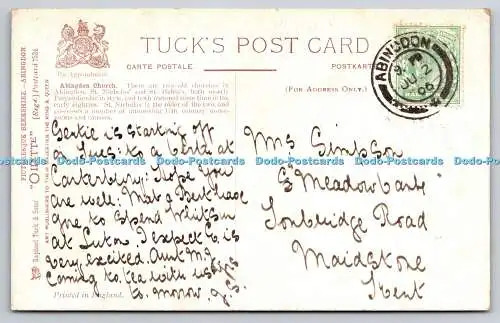 TUCK'S POST CARD
CARTE POSTALE.
POSTKARTE
By Appointment.
(FOR ADDRESS ONLY.)
Abingdon Church. There are two old churches in
Abingdon, St. Nicholas' and St. Helen's, both nearly
Perpendicular in style, and both restored more than
early eighties. St. Nicholas' is the older of the two, and
possesses a number of interesting 17th century monu-
ments and
PICTURESQUE BERKSHIRE. ABINGDON
"OILETTE" [Regd.] Postcard 7524
Raphael Tuck & Sons'
ART PUBLISHERS TO THEIR MAJESTIES THE KING & QUEEN
ABINGDON
JU 2
06
Bertie is starting off
on Tues: to a berth at
Canterbury: Hope you
are well: Ma & Bert have
gone to spend Whitsun
at Luton. I expect B. is
very excited. Aunt M.
coming to tea with us
to morrow. J.S.
Mrs Simpson
Meadow
Tonbridge Road
Maidstone
Kent
Printed in England.
Dodo-Postcards Dodo-Postcards Dodo-Postcards Dodo-Postcards Dodo-Postcards Dodo-Postcards